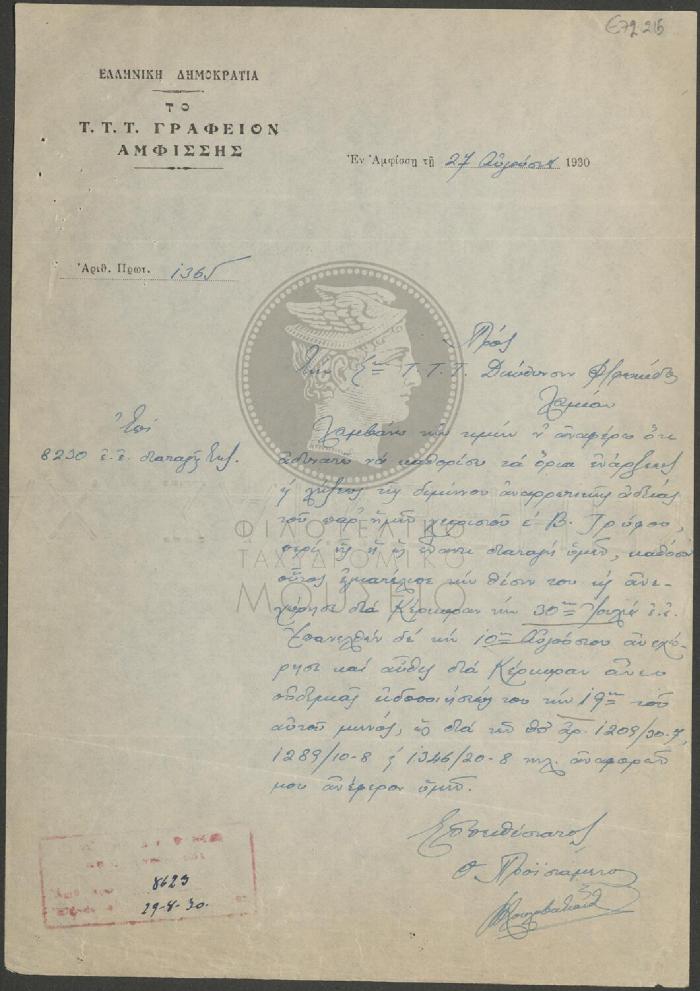 672 215
ΕΛΛΗΝΙΚΗ ΔΗΜΟΚΡΑΤΙΑ
ΤΟ
Τ. Τ. Τ. ΓΡΑΦΕΙΟΝ
ΑΜΦΙΣΣΗΣ
Ἐν Ἀμφίσσῃ τῇ 27 Αὐγούστου 1930
Ἀριθ. Πρωτ. 1365
Πρὸς
Τὴν Τ.Τ.Τ. Διεύθυνσιν
Λαμίαν
Ἐπὶ
8230 ἐ.ἔ. διαταγῆς
Λαμβάνω τὴν τιμὴν ν' ἀναφέρω ὅτι
ἀδυνατῶ νὰ καθορίσω τὰ ὅρια ἐνάρξεως
ἢ λήξεως τῆς διμήνου ἀναρρωτικῆς ἀδείας
τοῦ παρ' ἡμῖν χειριστοῦ κ. Β. Γρύφου,
περὶ ἧς ἡ διαταγὴ ὑμῶν, καθόσον
οὗτος ἐγκατέλιπε τὴν θέσιν του καὶ ἀνε-
χώρησε διὰ Κέρκυραν τὴν 30ην Ἰουλίου ἐ.ἔ.
Ἐπανελθὼν δὲ τὴν 10ην Αὐγούστου ἀνεχώ-
ρησε καὶ αὖθις διὰ Κέρκυραν ἄνευ
οὐδεμιᾶς εἰδοποιήσεώς του τὴν 19ην τοῦ
αὐτοῦ μηνός, ὡς διὰ τῶν ὑπ' ἀρ. 1209/30-7,
1289/10-8 ἢ 1346/20-8 τηλ. ἀναφορῶν
μου ἀνέφερον ὑμῖν.
Εὐπειθέστατος
Ὁ Προϊστάμενος
8623
29-8-30.
ΦΙΛΟΤΕΛΙΚΟ
ΤΑΧΥΔΡΟΜΙΚΟ
ΜΟΥΣΕΙΟ